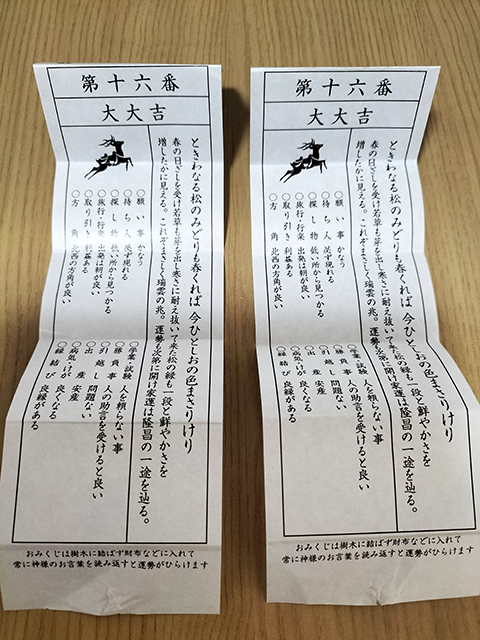 第十六番
大大吉
ときわなる松のみどりも春くれば 今ひとしおの色まさりけり
春の日ざしを受け若草も芽を出し寒さに耐え抜いて来た松の緑も一段と鮮やかさを
増したかに見える。これぞまさしく瑞雲の兆。運勢も次第に開け家運は隆昌の一途を辿る。
○願い事 かなう
○待ち人 必ず現れる
○探し物 低い所から見つかる
○旅行・行楽 出発は朝が良い
○取り引き 利益ある
○方角 北西の方角が良い
○学業・試験 人を頼らない事
○勝負事 人の助言を受けると良い
○引越し 問題ない
○出産 安産
○病気・けが 良くなる
○縁結び 良縁がある
おみくじは樹木に結ばず財布などに入れて
常に神様のお言葉を読み返すと運勢がひらけます
第十六番
大大吉
ときわなる松のみどりも春くれば 今ひとしおの色まさりけり
春の日ざしを受け若草も芽を出し寒さに耐え抜いて来た松の緑も一段と鮮やかさを
増したかに見える。これぞまさしく瑞雲の兆。運勢も次第に開け家運は隆昌の一途を辿る。
○願い事 かなう
○待ち人 必ず現れる
○探し物 低い所から見つかる
○旅行・行楽 出発は朝が良い
○取り引き 利益ある
○方角 北西の方角が良い
○学業・試験 人を頼らない事
○勝負事 人の助言を受けると良い
○引越し 問題ない
○出産 安産
○病気・けが 良くなる
○縁結び 良縁がある
おみくじは樹木に結ばず財布などに入れて
常に神様のお言葉を読み返すと運勢がひらけます